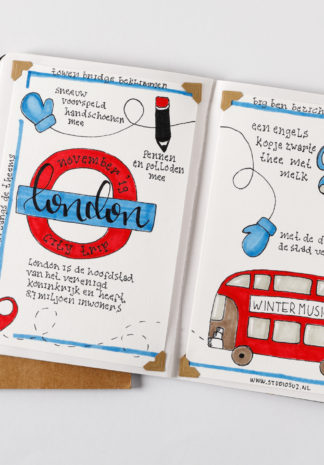 tower bridge beklimmen
sneeuw
voorspeld
handschoenen
mee
pennen
en potloden
mee
november '19
london
city trip
langs de theems
london is de hoofdstad
van het verenigd
koninkrijk en heeft
8,7 miljoen inwoners
big ben bezich
een engels
kopje zwarte
thee met
melk
met de d
de stad v
WINTER MUSI
WWW.STUDIOSUZ.NL